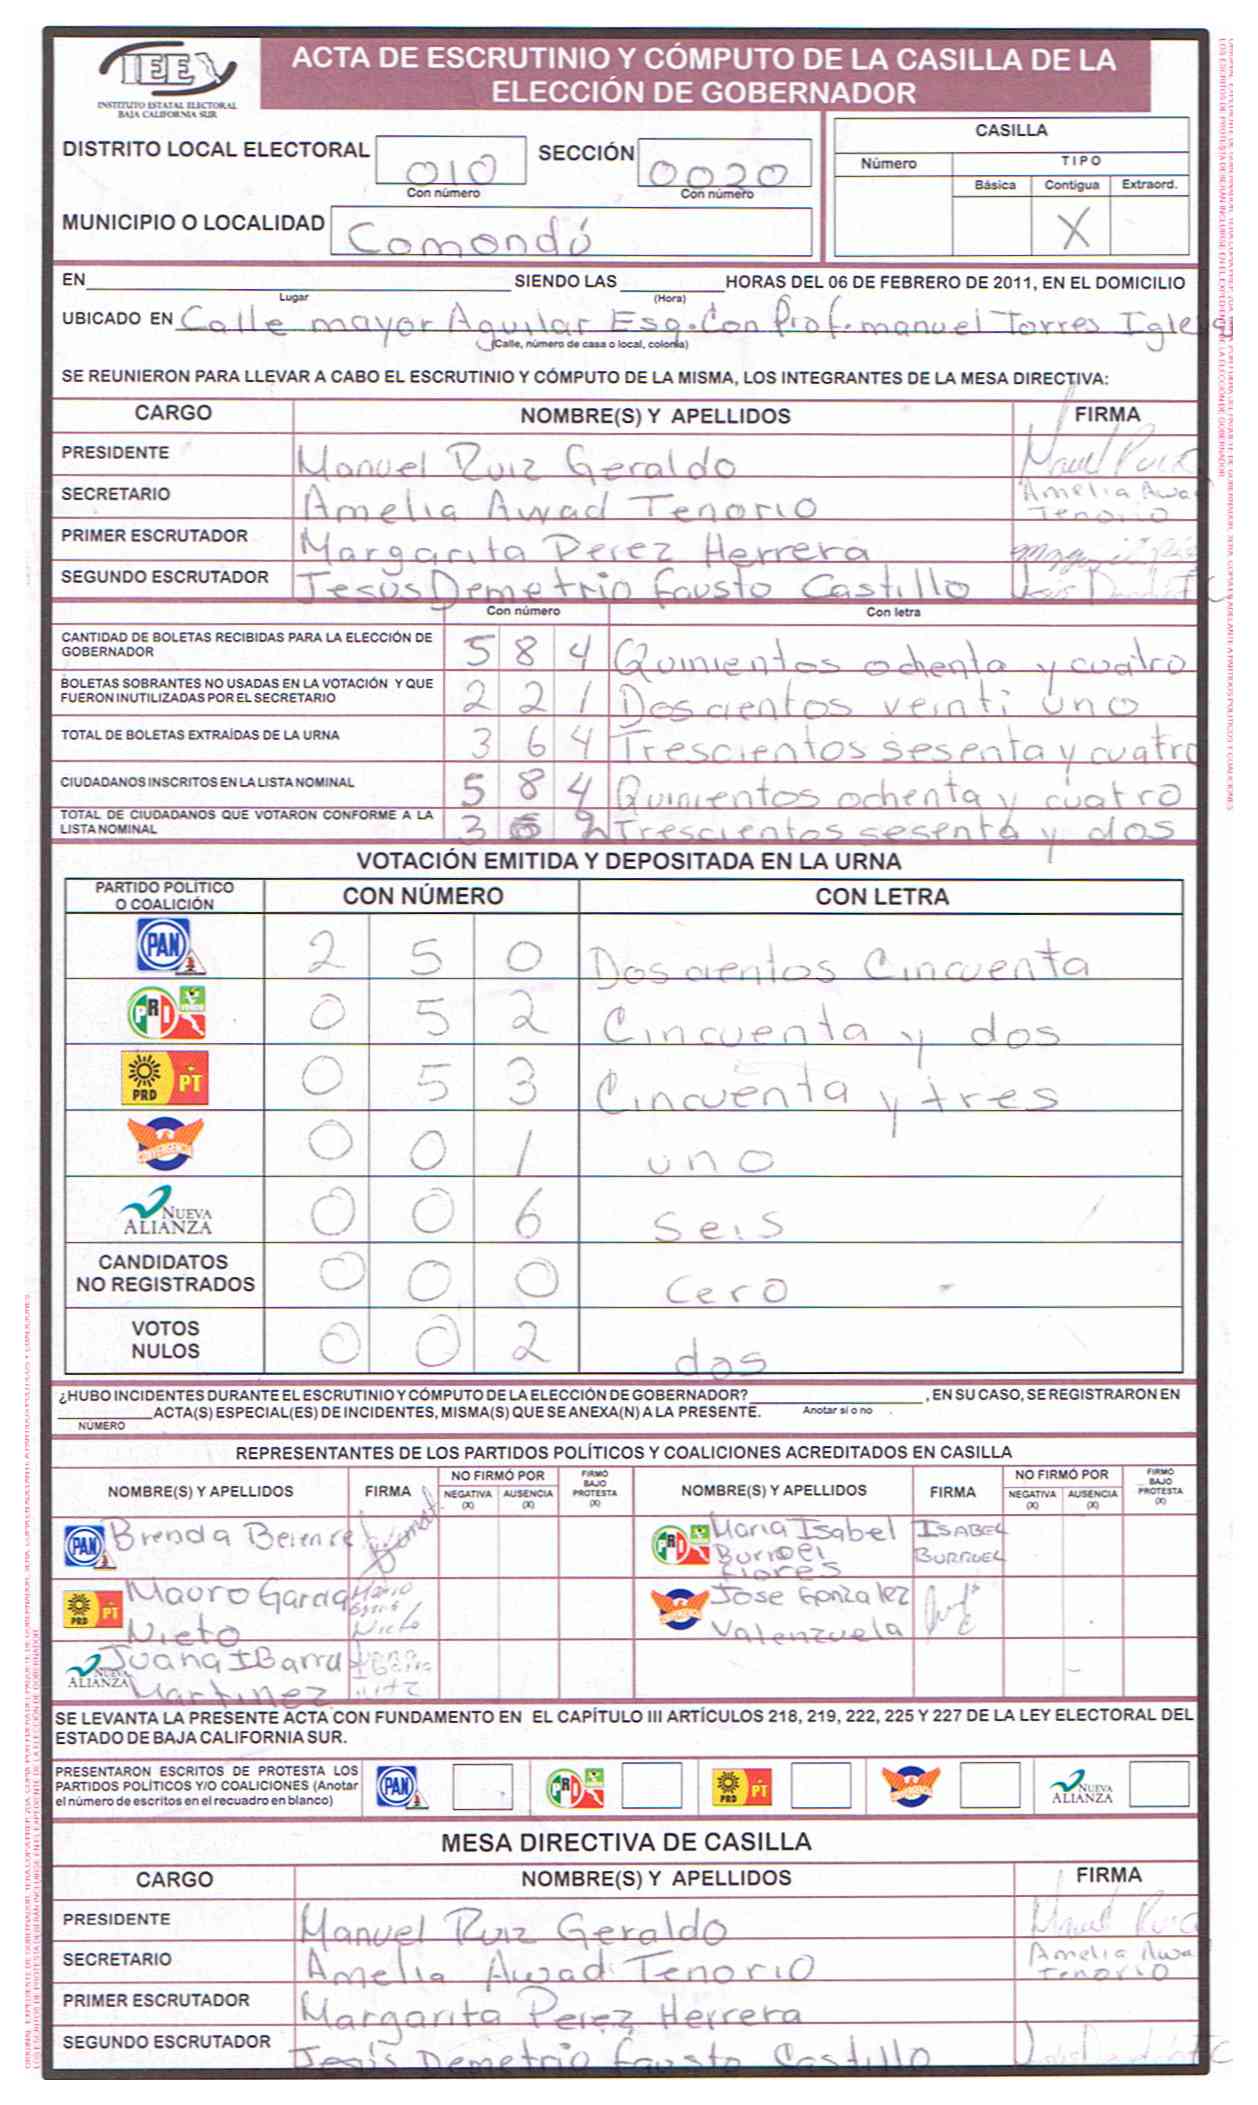 IEE
INSTITUTO ESTATAL ELECTORAL
BAJA CALIFORNIA SUR
ACTA DE ESCRUTINIO Y CÓMPUTO DE LA CASILLA DE LA
ELECCIÓN DE GOBERNADOR
DISTRITO LOCAL ELECTORAL 010 SECCIÓN 0020
Con número Con número
MUNICIPIO O LOCALIDAD Comondú
CASILLA
Número TIPO
Básica Contigua Extraord.
X
EN SIENDO LAS HORAS DEL 06 DE FEBRERO DE 2011, EN EL DOMICILIO
Lugar (Hora)
UBICADO EN Calle mayor Aguilar Esq. Con Prof. manuel Torres Igles
(Calle, número de casa o local, colonia)
SE REUNIERON PARA LLEVAR A CABO EL ESCRUTINIO Y CÓMPUTO DE LA MISMA, LOS INTEGRANTES DE LA MESA DIRECTIVA:
CARGO NOMBRE(S) Y APELLIDOS FIRMA
PRESIDENTE Manuel Ruiz Geraldo Manuel Ruiz
SECRETARIO Amelia Awad Tenorio Amelia Awad Tenorio
PRIMER ESCRUTADOR Margarita Perez Herrera
SEGUNDO ESCRUTADOR Jesus Demetrio Fausto Castillo
Con número Con letra
CANTIDAD DE BOLETAS RECIBIDAS PARA LA ELECCIÓN DE
GOBERNADOR 584 Quinientos ochenta y cuatro
BOLETAS SOBRANTES NO USADAS EN LA VOTACIÓN Y QUE
FUERON INUTILIZADAS POR EL SECRETARIO 221 Doscientos veinti uno
TOTAL DE BOLETAS EXTRAÍDAS DE LA URNA 364 Trescientos sesenta y cuatro
CIUDADANOS INSCRITOS EN LA LISTA NOMINAL 584 Quinientos ochenta y cuatro
TOTAL DE CIUDADANOS QUE VOTARON CONFORME A LA
LISTA NOMINAL 362 Trescientos sesenta y dos
VOTACIÓN EMITIDA Y DEPOSITADA EN LA URNA
PARTIDO POLÍTICO
O COALICIÓN CON NÚMERO CON LETRA
PAN 2 5 0 Doscientos Cincuenta
PRI VERDE 0 5 2 Cincuenta y dos
PRD PT 0 5 3 Cincuenta y tres
CONVERGENCIA 0 0 1 uno
NUEVA ALIANZA 0 0 6 Seis
CANDIDATOS
NO REGISTRADOS 0 0 0 Cero
VOTOS
NULOS 0 0 2 dos
¿HUBO INCIDENTES DURANTE EL ESCRUTINIO Y CÓMPUTO DE LA ELECCIÓN DE GOBERNADOR? , EN SU CASO, SE REGISTRARON EN
ACTA(S) ESPECIAL(ES) DE INCIDENTES, MISMA(S) QUE SE ANEXA(N) A LA PRESENTE. Anotar sí o no
NÚMERO
REPRESENTANTES DE LOS PARTIDOS POLÍTICOS Y COALICIONES ACREDITADOS EN CASILLA
NOMBRE(S) Y APELLIDOS FIRMA NO FIRMÓ POR NEGATIVA (X) AUSENCIA (X) FIRMÓ BAJO PROTESTA (X) NOMBRE(S) Y APELLIDOS FIRMA NO FIRMÓ POR NEGATIVA (X) AUSENCIA (X) FIRMÓ BAJO PROTESTA (X)
PAN Brenda PRI Maria Isabel Burruel Flores ISABEL BURRUEL
PRD PT Mauro Garcia Nieto CONVERGENCIA Jose Gonzalez Valenzuela
NUEVA ALIANZA Juana Ibarra Martinez
SE LEVANTA LA PRESENTE ACTA CON FUNDAMENTO EN EL CAPÍTULO III ARTÍCULOS 218, 219, 222, 225 Y 227 DE LA LEY ELECTORAL DEL
ESTADO DE BAJA CALIFORNIA SUR.
PRESENTARON ESCRITOS DE PROTESTA LOS
PARTIDOS POLÍTICOS Y/O COALICIONES (Anotar
el número de escritos en el recuadro en blanco)
PAN PRI PRD PT CONVERGENCIA NUEVA ALIANZA
MESA DIRECTIVA DE CASILLA
CARGO NOMBRE(S) Y APELLIDOS FIRMA
PRESIDENTE Manuel Ruiz Geraldo Manuel Ruiz
SECRETARIO Amelia Awad Tenorio Amelia Awad Tenorio
PRIMER ESCRUTADOR Margarita Perez Herrera
SEGUNDO ESCRUTADOR Jesús Demetrio Fausto Castillo